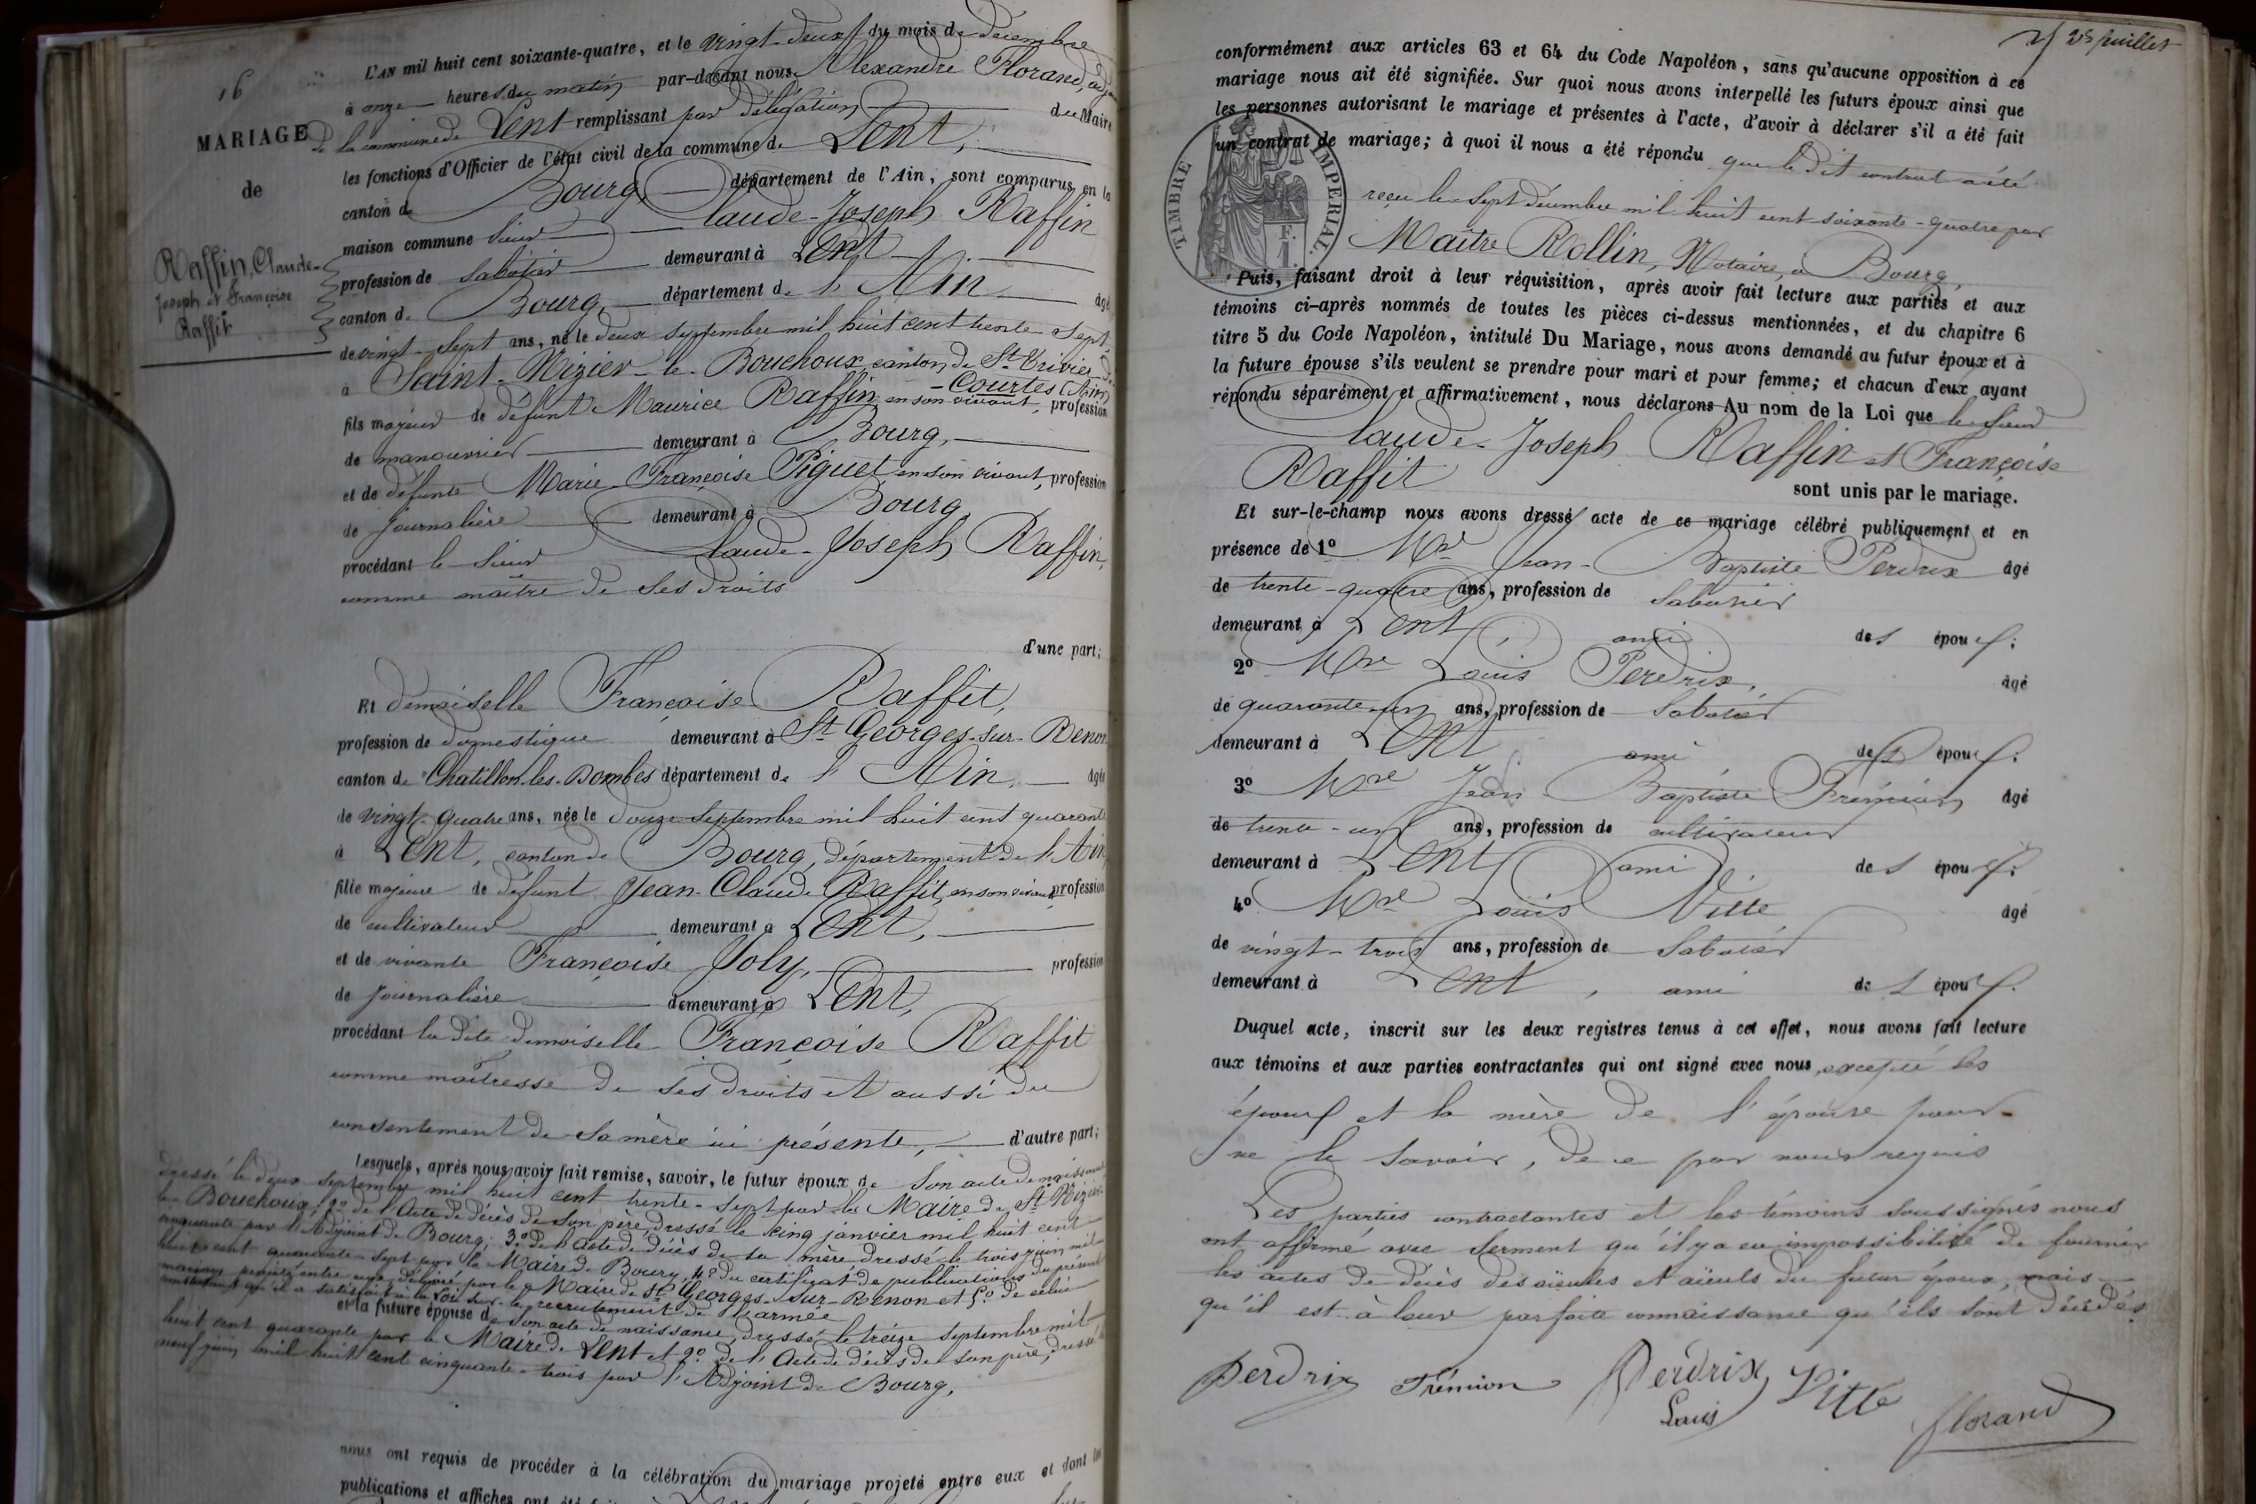 16
MARIAGE
de
Raffin, Claude-
Joseph et Françoise
Raffit
L'AN mil huit cent soixante-quatre, et le vingt-deux du mois de décembre
à onze heures du matin par-devant nous Alexandre Florand, adjoint
de la commune de Lent remplissant par délégation du Maire
les fonctions d'Officier de l'état civil de la commune de Lent,
canton de Bourg, département de l'Ain, sont comparus en la
maison commune Sieur Claude-Joseph Raffin
profession de Sabotier demeurant à Lent
canton de Bourg, département de l'Ain âgé
de vingt-sept ans, né le deux septembre mil huit cent trente-sept
à Saint-Nizier-le-Bouchoux, canton de St Trivier-de
-Courtes (Ain)
fils majeur de défunt Maurice Raffin, en son vivant, profession
de manouvrier demeurant à Bourg,
et de défunte Marie-Françoise Piguet, en son vivant, profession
de journalière demeurant à Bourg,
procédant le Sieur Claude-Joseph Raffin,
comme maître de ses droits
d'une part;
Et demoiselle Françoise Raffit,
profession de domestique demeurant à St Georges-sur-Renon
canton de Chatillon-les-Dombes département de l'Ain, âgée
de vingt-quatre ans, née le douze septembre mil huit cent quarante
à Lent, canton de Bourg, département de l'Ain
fille majeure de défunt Jean-Claude Raffit, en son vivant, profession
de cultivateur demeurant à Lent,
et de vivante Françoise Joly, profession
de journalière demeurant à Lent,
procédant la dite demoiselle Françoise Raffit
comme maîtresse de ses droits et aussi du
consentement de sa mère ici présente, d'autre part;
Lesquels, après nous avoir fait remise, savoir, le futur époux de Son acte de naissance
dressé le deux septembre mil huit cent trente-sept par le Maire de St Nizier-
le-Bouchoux; 2º de l'Acte de décès de son père, dressé le cinq janvier mil huit cent
cinquante par l'Adjoint de Bourg; 3º de l'acte de décès de sa mère, dressé le trois juin mil
huit cent quarante-sept par le Maire de Bourg, 4º du certificat de publications du présent
mariage projeté entre eux, délivré par le Maire de St Georges-sur-Renon et 5º de celui
constatant qu'il a satisfait à la loi sur le recrutement de l'armée
et la future épouse de son acte de naissance, dressé le treize septembre mil
huit cent quarante par le Maire de Lent et 2º de l'Acte de décès de son père, dressé le
neuf juin mil huit cent cinquante-trois par l'Adjoint de Bourg,
nous ont requis de procéder à la célébration du mariage projeté entre eux et dont les
publications et affiches ont été
25 Juillet
conformément aux articles 63 et 64 du Code Napoléon, sans qu'aucune opposition à ce
mariage nous ait été signifiée. Sur quoi nous avons interpellé les futurs époux ainsi que
les personnes autorisant le mariage et présentes à l'acte, d'avoir à déclarer s'il a été fait
un contrat de mariage; à quoi il nous a été répondu que le dit contrat a été
reçu le sept décembre mil huit cent soixante-quatre par
Maître Rollin, Notaire à Bourg,
TIMBRE IMPERIAL.
F.
1
Puis, faisant droit à leur réquisition, après avoir fait lecture aux parties et aux
témoins ci-après nommés de toutes les pièces ci-dessus mentionnées, et du chapitre 6
titre 5 du Code Napoléon, intitulé Du Mariage, nous avons demandé au futur époux et à
la future épouse s'ils veulent se prendre pour mari et pour femme; et chacun d'eux ayant
répondu séparément et affirmativement, nous déclarons Au nom de la Loi que le Sieur
Claude-Joseph Raffin et Françoise
Raffit sont unis par le mariage.
Et sur-le-champ nous avons dressé acte de ce mariage célébré publiquement et en
présence de 1º Mre Jean-Baptiste Perdrix âgé
de trente-quatre ans, profession de Sabotier
demeurant à Lent, ami des époux;
2º Mre Louis Perdrix, âgé
de quarante-un ans, profession de Sabotier
demeurant à Lent ami des époux;
3º Mre Jean Baptiste Frémion, âgé
de trente-un ans, profession de cultivateur
demeurant à Lent ami des époux;
4º Mre Louis Vitte âgé
de vingt-trois ans, profession de Sabotier
demeurant à Lent, ami des époux.
Duquel acte, inscrit sur les deux registres tenus à cet effet, nous avons fait lecture
aux témoins et aux parties contractantes qui ont signé avec nous, excepté les
époux et la mère de l'épouse pour
ne le savoir, de ce par nous requis
Les parties contractantes et les témoins soussignés nous
ont affirmé avec serment qu'il y a eu impossibilité de fournir
les actes de décès des aïeules et aïeuls du futur époux, mais
qu'il est à leur parfaite connaissance qu'ils sont décédés.
Perdrix Frémion Perdrix Vitte
Louis
Florand